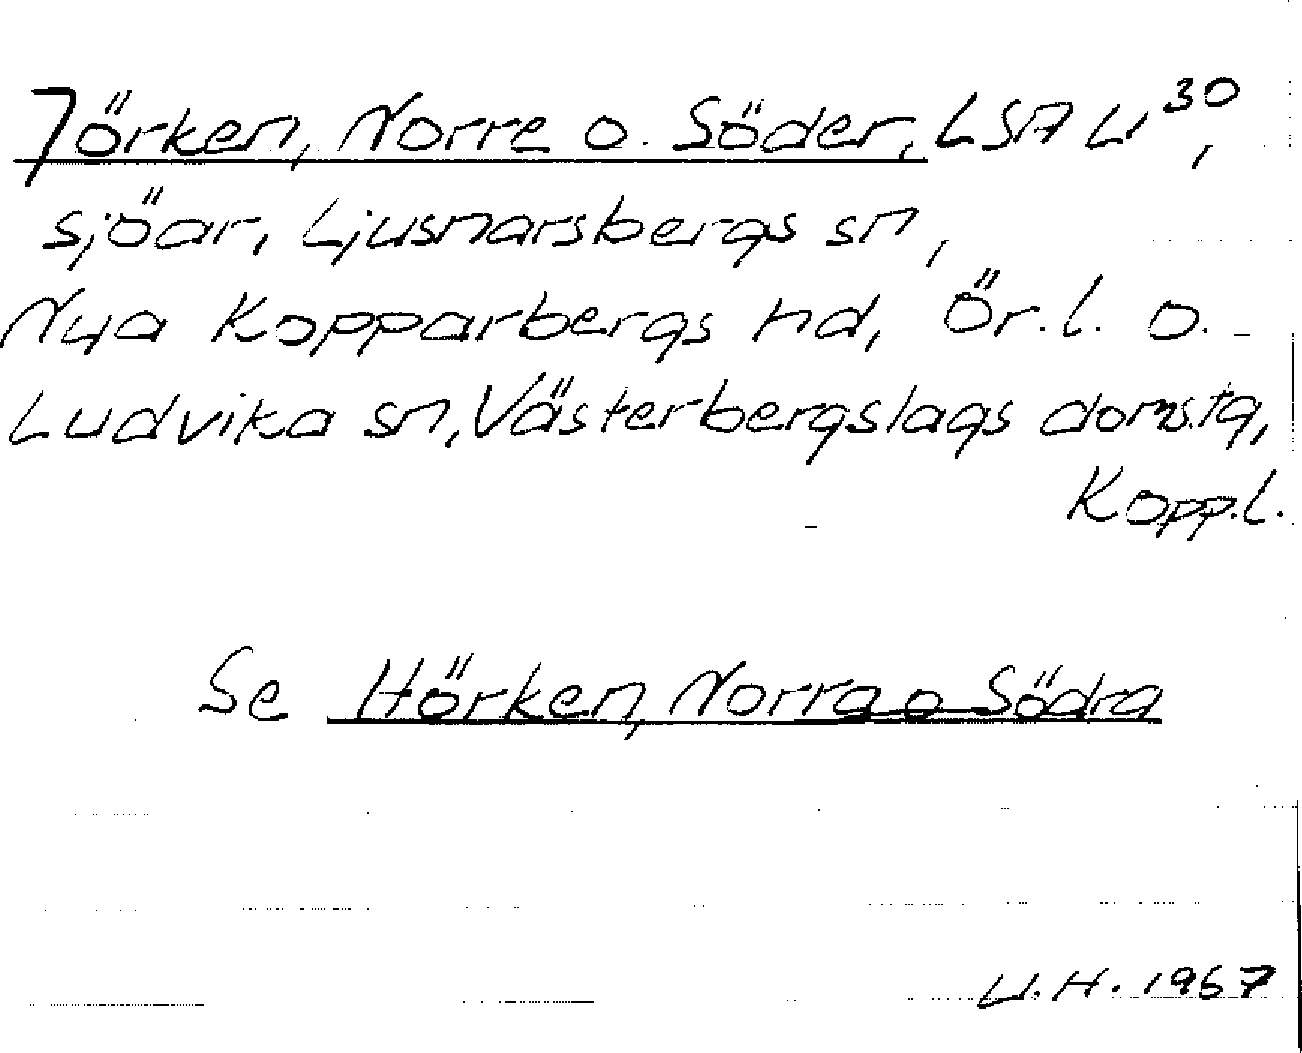 Jörken, Norre o. Söder, LSA U³⁰,
sjöar, Ljusnarsbergs sn,
Nya Kopparbergs hd, Ör.l. o.
Ludvika sn, Västerbergslags doms.tg,
Kopp.l.
Se Hörken, Norra o Södra
U.H. 1967